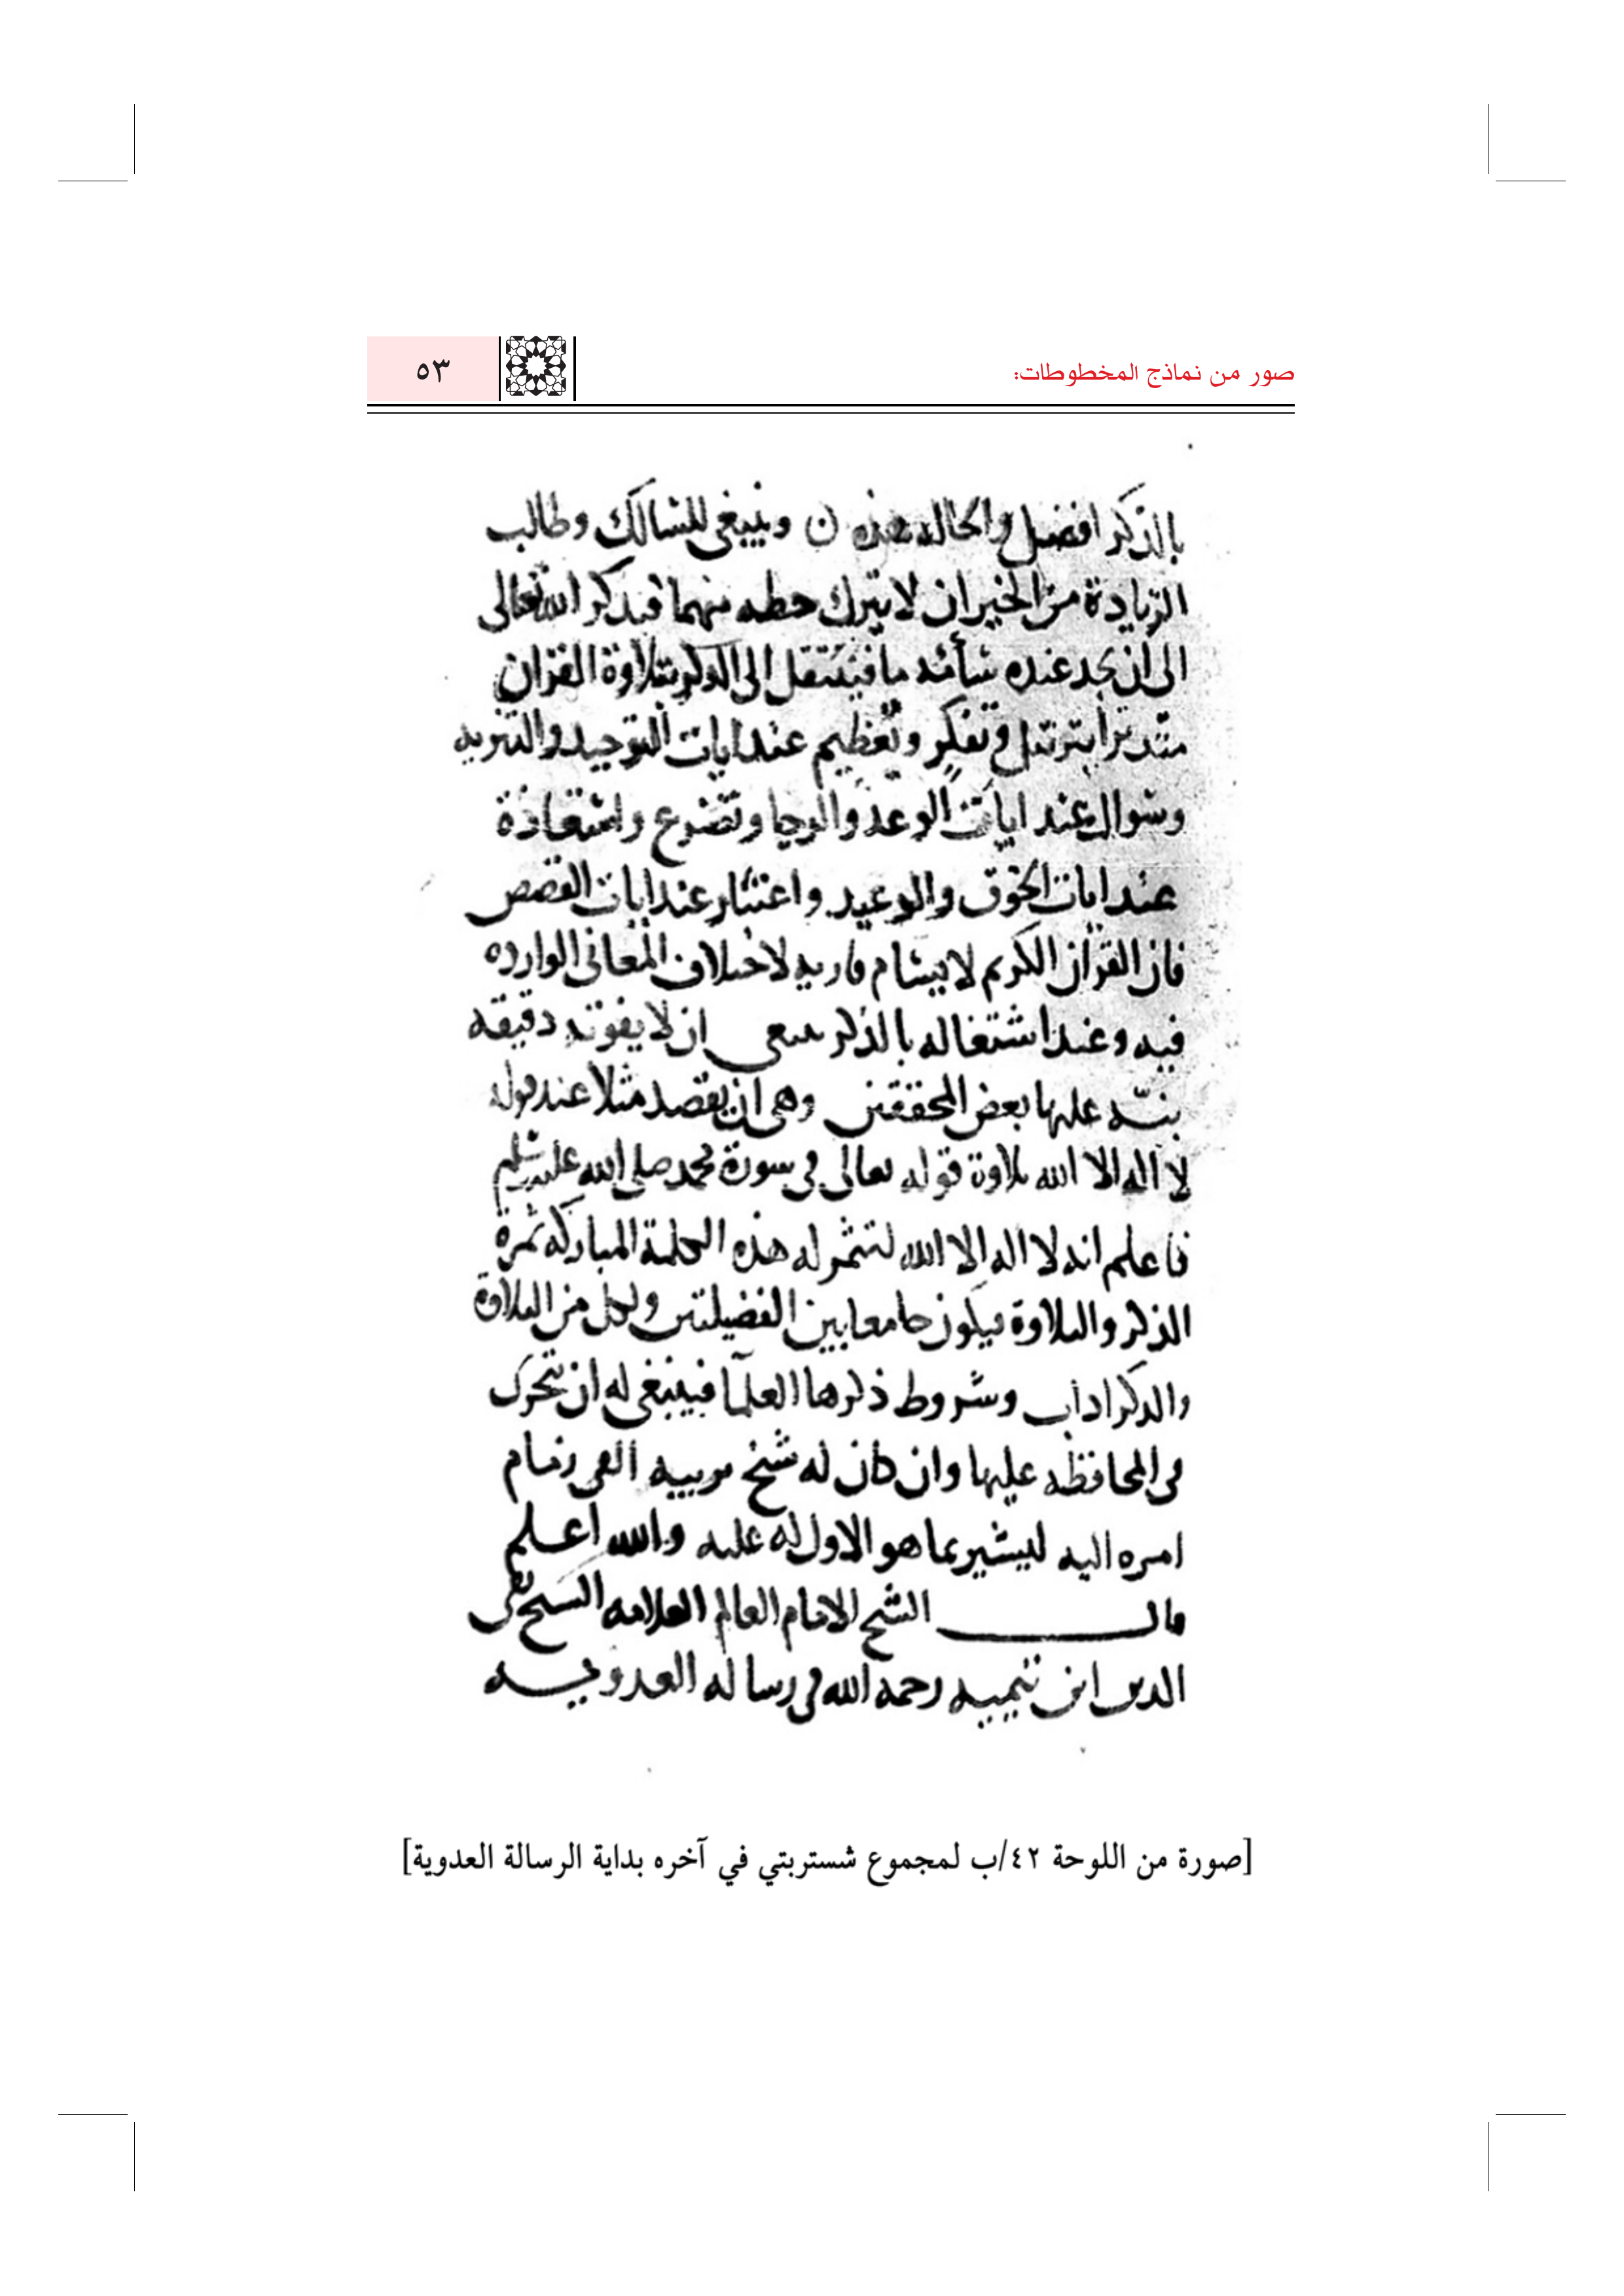 صور من نماذج المخطوطات:
٥٣
بالذكر افضل والحاله هذه ن وينبغي للسالك وطالب
الزيادة من الخير ان لا يترك حظه منهما فيذكر الله تعالى
الى ان يجد عنده سأمة ما فينتقل الى الذكر بتلاوة القران
متدبرا بترتيل وتفكر وتعظيم عند ايات التوحيد والتنزيه
وسوال عند ايات الوعد والرجا وتضرع واستعاذة
عند ايات الخوف والوعيد واعتبار عند ايات القصص
فان القرآن الكريم لا يسام قاريه لاختلاف المعاني الوارده
فيه وعند اشتغاله بالذكر ينبغي ان لا يفوته دقيقه
نبه عليها بعض المحققين وهي ان يقصد مثلا عند قوله
لا اله الا الله تلاوة قوله تعالى في سورة محمد صلى الله عليه وسلم
فاعلم انه لا اله الا الله لتثمر له هذه الكلمة المباركه ثمرة
الذكر والتلاوة فيكون جامعا بين الفضيلتين ولكل من التلاوة
والذكر اداب وشروط ذكرها العلمآ فينبغي له ان يتحرك
في المحافظه عليها وان كان له شيخ يربيه القى زمام
امره اليه ليشير بما هو الاولى له عليه والله اعلم
قال الشيخ الامام العالم العلامه الشيخ تقي
الدين ابن تيميه رحمه الله في رساله العدويه
[صورة من اللوحة ٤٢/ب لمجموع شستربتي في آخره بداية الرسالة العدوية]